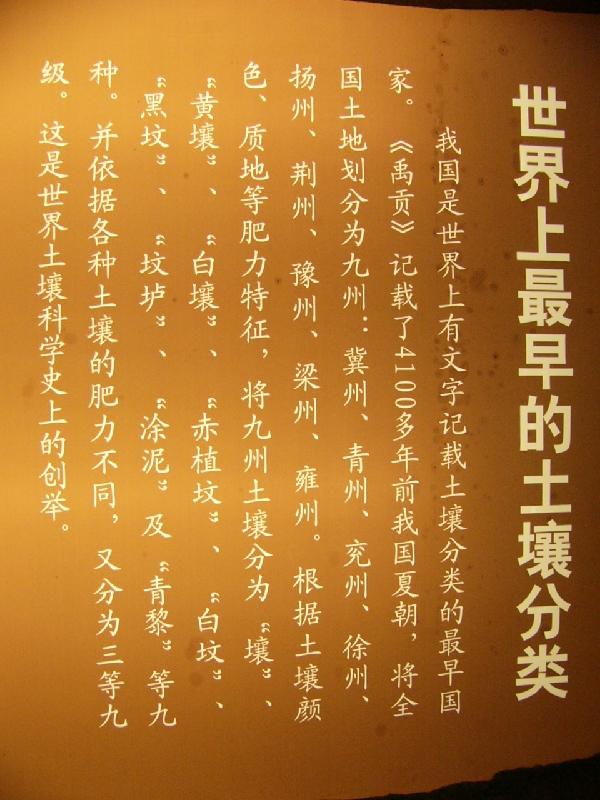 世界上最早的土壤分类
我国是世界上有文字记载土壤分类的最早国
家。《禹贡》记载了4100多年前我国夏朝，将全
国土地划分为九州：冀州、青州、兖州、徐州、
扬州、荆州、豫州、梁州、雍州。根据土壤颜
色、质地等肥力特征，将九州土壤分为“壤”、
“黄壤”、“白壤”、“赤植坟”、“白坟”、
“黑坟”、“坟垆”、“涂泥”及“青黎”等九
种。并依据各种土壤的肥力不同，又分为三等九
级。这是世界土壤科学史上的创举。